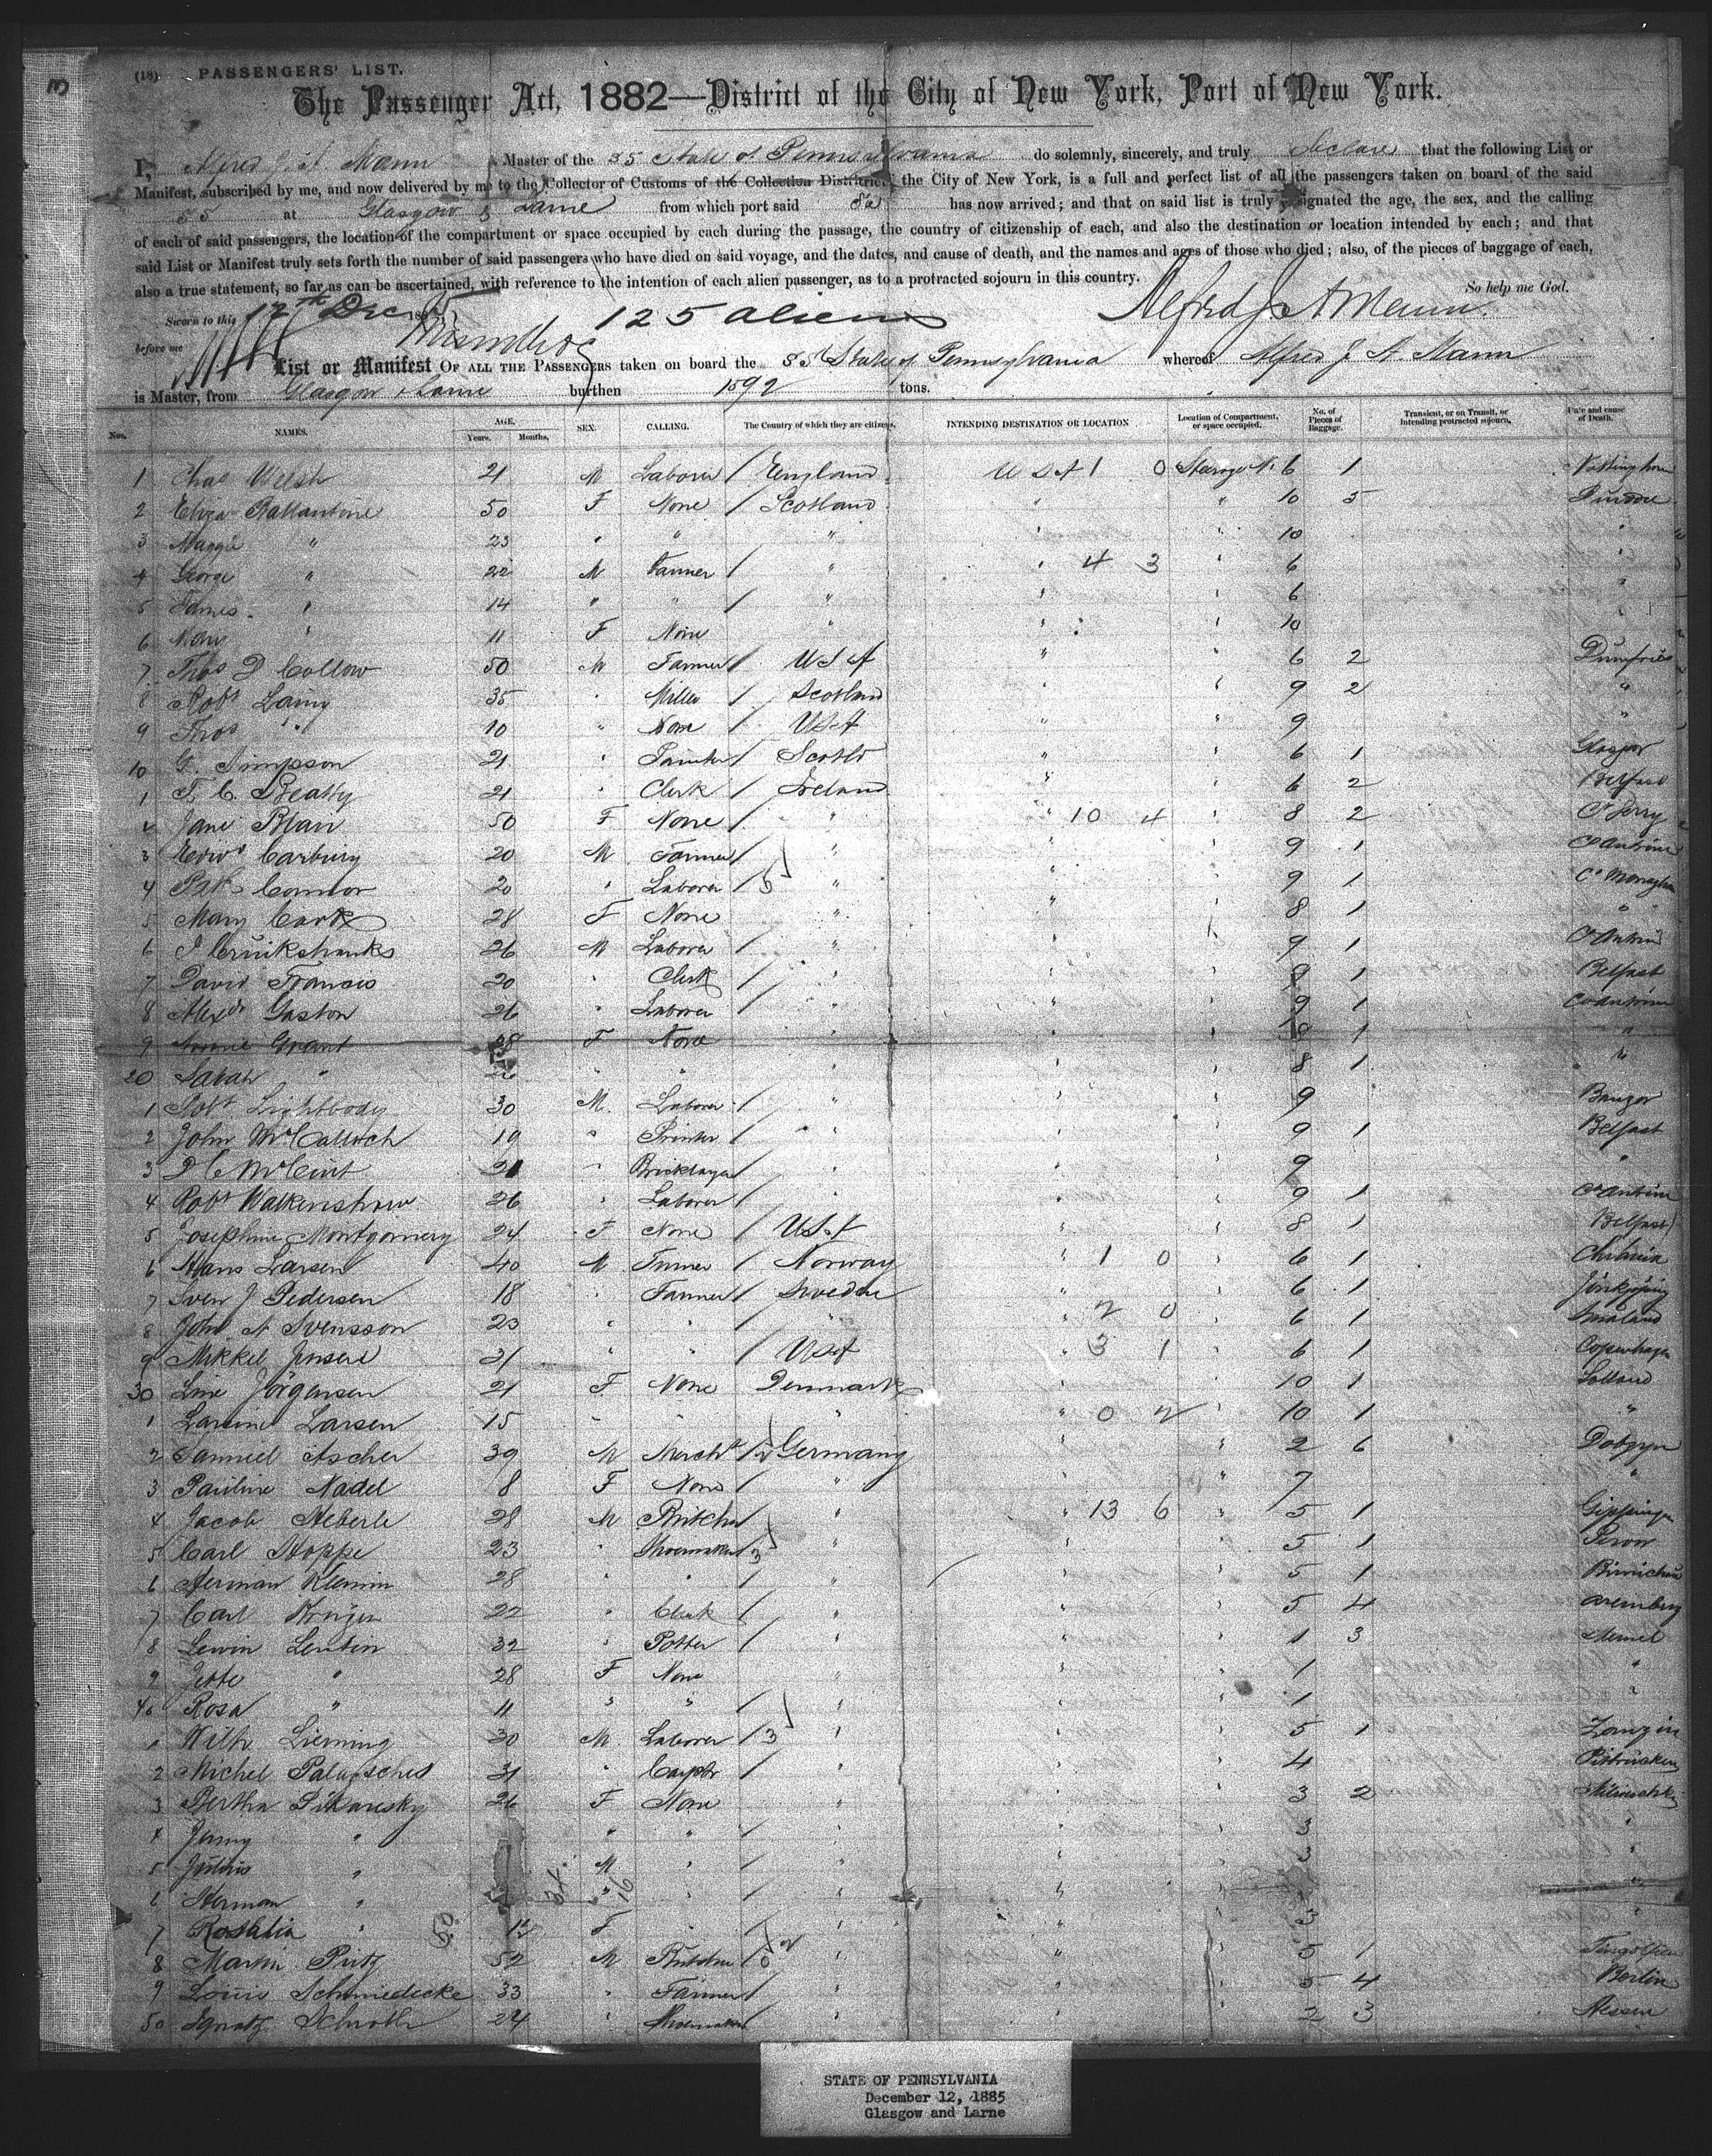 (18) PASSENGERS' LIST.
The Passenger Act, 1882—District of the City of New York, Port of New York.
I, Alfred J. A. Mann Master of the SS State of Pennsylvania do solemnly, sincerely, and truly declare that the following List or
Manifest, subscribed by me, and now delivered by me to the Collector of Customs of the Collection District of the City of New York, is a full and perfect list of all the passengers taken on board of the said
SS at Glasgow & Larne from which port said SS has now arrived; and that on said list is truly designated the age, the sex, and the calling
of each of said passengers, the location of the compartment or space occupied by each during the passage, the country of citizenship of each, and also the destination or location intended by each; and that
said List or Manifest truly sets forth the number of said passengers who have died on said voyage, and the dates, and cause of death, and the names and ages of those who died; also, of the pieces of baggage of each,
also a true statement, so far as can be ascertained, with reference to the intention of each alien passenger, as to a protracted sojourn in this country. So help me God.
Sworn to this 12th Dec 1885 125 aliens Alfred J. A. Mann
before me
List or Manifest OF ALL THE PASSENGERS taken on board the SS State of Pennsylvania whereof Alfred J. A. Mann
is Master, from Glasgow & Larne burthen 1592 tons.
No. NAMES. AGE. Years. Months. SEX. CALLING. The Country of which they are citizens. INTENDING DESTINATION OR LOCATION Location of Compartment, or space occupied. No. of Pieces of Baggage. Transient, or on Transit, or intending protracted sojourn. Date and cause of Death.
1 Chas Welsh 21 M Laborer / England U S A 1 0 Steerage N. 6 1 Nottingham
2 Eliza Ballantine 50 F None / Scotland " " 10 5 Dundee
3 Maggie " 23 " " " " " 10 "
4 George " 22 M Farmer / " " 4 3 " 6 "
5 James " 14 " " / " " " 6 "
6 Mary " 11 F None " " " 10 "
7 Thos D Collow 50 M Farmer / U S A " " 6 2 Dumfries
8 Robt Laing 35 " Miller / Scotland " " 9 2 "
9 Thos " 10 " None / USA " " 9 "
10 G. Simpson 21 " Painter / Scotld " " 6 1 Glasgow
1 T. C. Beatty 21 " Clerk / Ireland " " 6 2 Belfast
2 Jane Blair 50 F None / " " 10 4 " 8 2 Co Derry
3 Edwd Carbury 20 M Farmer / " " " 9 1 Co Antrim
4 Patk Connor 20 " Laborer / 5 " " " 9 1 Co Monaghan
5 Mary Cark 28 F None " " " 8 1 "
6 J Cruikshanks 26 M Laborer / " " " 9 1 Co Antrim
7 David Francis 20 " Clerk / " " " 9 1 Belfast
8 Alexdr Gaston 26 " Laborer / " " " 9 1 Co Antrim
9 Annie Grant 28 F None " " 8 1 "
20 Sarah " 26 " " " " 8 1 "
1 Robt Lightbody 30 M. Laborer / " " " 9 Bangor
2 John McCulloch 19 " Printer / " " " 9 1 Belfast
3 21 " Bricklayer / " " " 9 "
4 Robt Walkenshaw 26 " Laborer / " " " 9 1 Co Antrim
5 Josephine Montgomery 24 F None / USA " " 8 1 Belfast
6 Hans Larsen 40 M / Norway " 1 0 " 6 1
7 Sven J Pedersen 18 " Farmer / Sweden " " 6 1 Jönköping
8 John A Svensson 23 " " / " 2 0 " 6 1 Smaland
9 Mikkel Jensen 21 " " / USA " 3 1 " 6 1 Copenhagen
30 Line Jörgensen 21 F None Denmark 10 1 Lolland
1 Larsine Larsen 15 " " " " 0 2 " 10 1 "
2 Samuel Ascher 39 M Mercht / 2 Germany " " 2 6
3 Pauline Nadel 8 F None / " " " 7 "
4 Jacob Heberle 28 M Butcher / " " 13 6 " 5 1
5 Carl Hoppe 23 " Shoemaker / 3 " " " 5 1
6 Herman Klemin 28 " " / " " " 5 1
7 Carl Krüger 22 " Clerk / " " " 5 4
8 Lewin Lentin 32 " Potter / " " " 1 3 Memel
9 Jette " 28 F None " " " 1 "
40 Rosa " 11 " " / " " " 1 "
1 Wilh. Lierning 30 M. Laborer / 3 " " " 5 1
2 Michel 31 " Carptr / " " " 4
3 Bertha Pikaresky 26 F None " " " 3 2
4 Jenny " " " / " " " 3 "
5 Julius " M " / " " " 3 "
6 Herman " " " / " " " "
7 Rosalia " F " " " " 3 "
8 Martin Putz 52 M Butcher / " " " 5 1
9 Louis Schmiedecke 33 " Farmer / " " " 5 4 Berlin
50 Ignatz Schroth 24 " Shoemaker " " " 2 3 Hessen
STATE OF PENNSYLVANIA
December 12, 1885
Glasgow and Larne